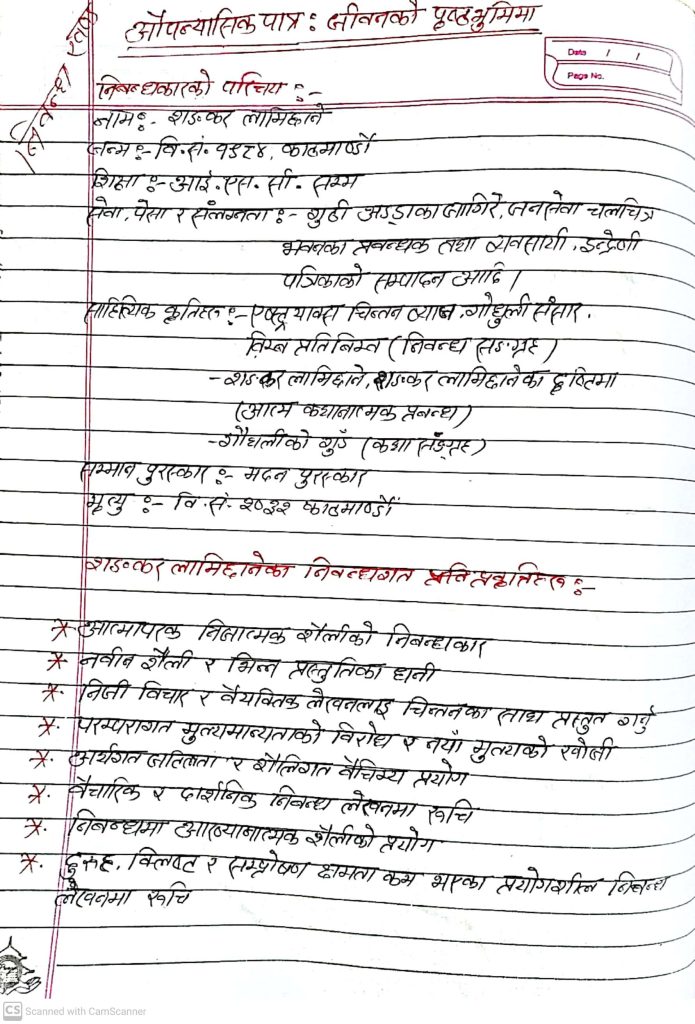 औपन्यासिक पात्र : जीवनको पृष्ठभूमिमा
Date / /
Page No.
निबन्धकारको परिचय :-
नाम :- शङ्कर लामिछाने
जन्म :- वि.सं. १९८४, काठमाण्डौं
शिक्षा :- आई.एस.सी. सम्म
सेवा, पेसा र संलग्नता :- गुठी अड्डाका जागिरे, जनसेवा चलचित्र
भवनका प्रबन्धक तथा व्यवसायी, इन्द्रेणी
पत्रिकाको सम्पादन आदि ।
साहित्यिक कृतिहरू :- एब्स्ट्र्याक्ट चिन्तन प्याज, गोधुली संसार,
विम्ब प्रतिबिम्ब (निबन्ध सङ्ग्रह)
- शङ्कर लामिछाने, शङ्कर लामिछानेका दृष्टिमा
(आत्म कथानात्मक प्रबन्ध)
- गौंथलीको गुँड (कथा सङ्ग्रह)
सम्मान पुरस्कार :- मदन पुरस्कार
मृत्यु :- वि.सं. २०३२ काठमाण्डौं
शङ्कर लामिछानेका निबन्धगत प्रवृतिहरू :-
* आत्मपरक निजात्मक शैलीको निबन्धकार
* नवीन शैली र भिन्न प्रस्तुतिका धनी
* निजी विचार र वैयक्तिक लेखनलाइ चिन्तनका साथ प्रस्तुत गर्नु
* परम्परागत मुल्यमान्यताको विरोध र नयाँ मुल्यको खोजी
* अर्थगत जटिलता र शैलिगत वैचित्र्य प्रयोग
* वैचारिक र दार्शनिक निबन्ध लेखनमा रूचि
* निबन्धमा आख्यानात्मक शैलीको प्रयोग
* दुरुह, क्लिष्ट र सम्प्रेषण क्षमता कम भएका प्रयोगशील निबन्ध
लेखनमा रूचि
CS Scanned with CamScanner